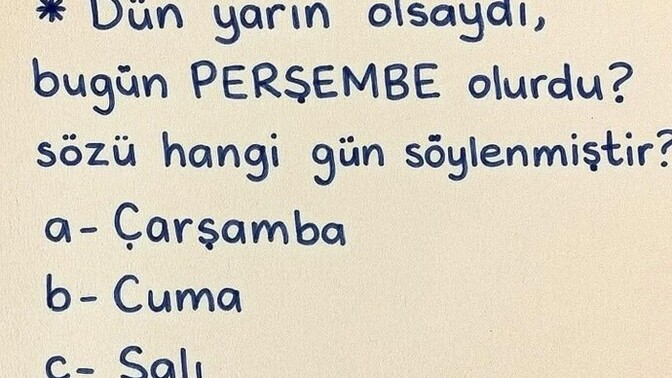 * Dün yarın olsaydı,
bugün PERŞEMBE olurdu?
sözü hangi gün söylenmiştir?
a- Çarşamba
b- Cuma
c- Salı